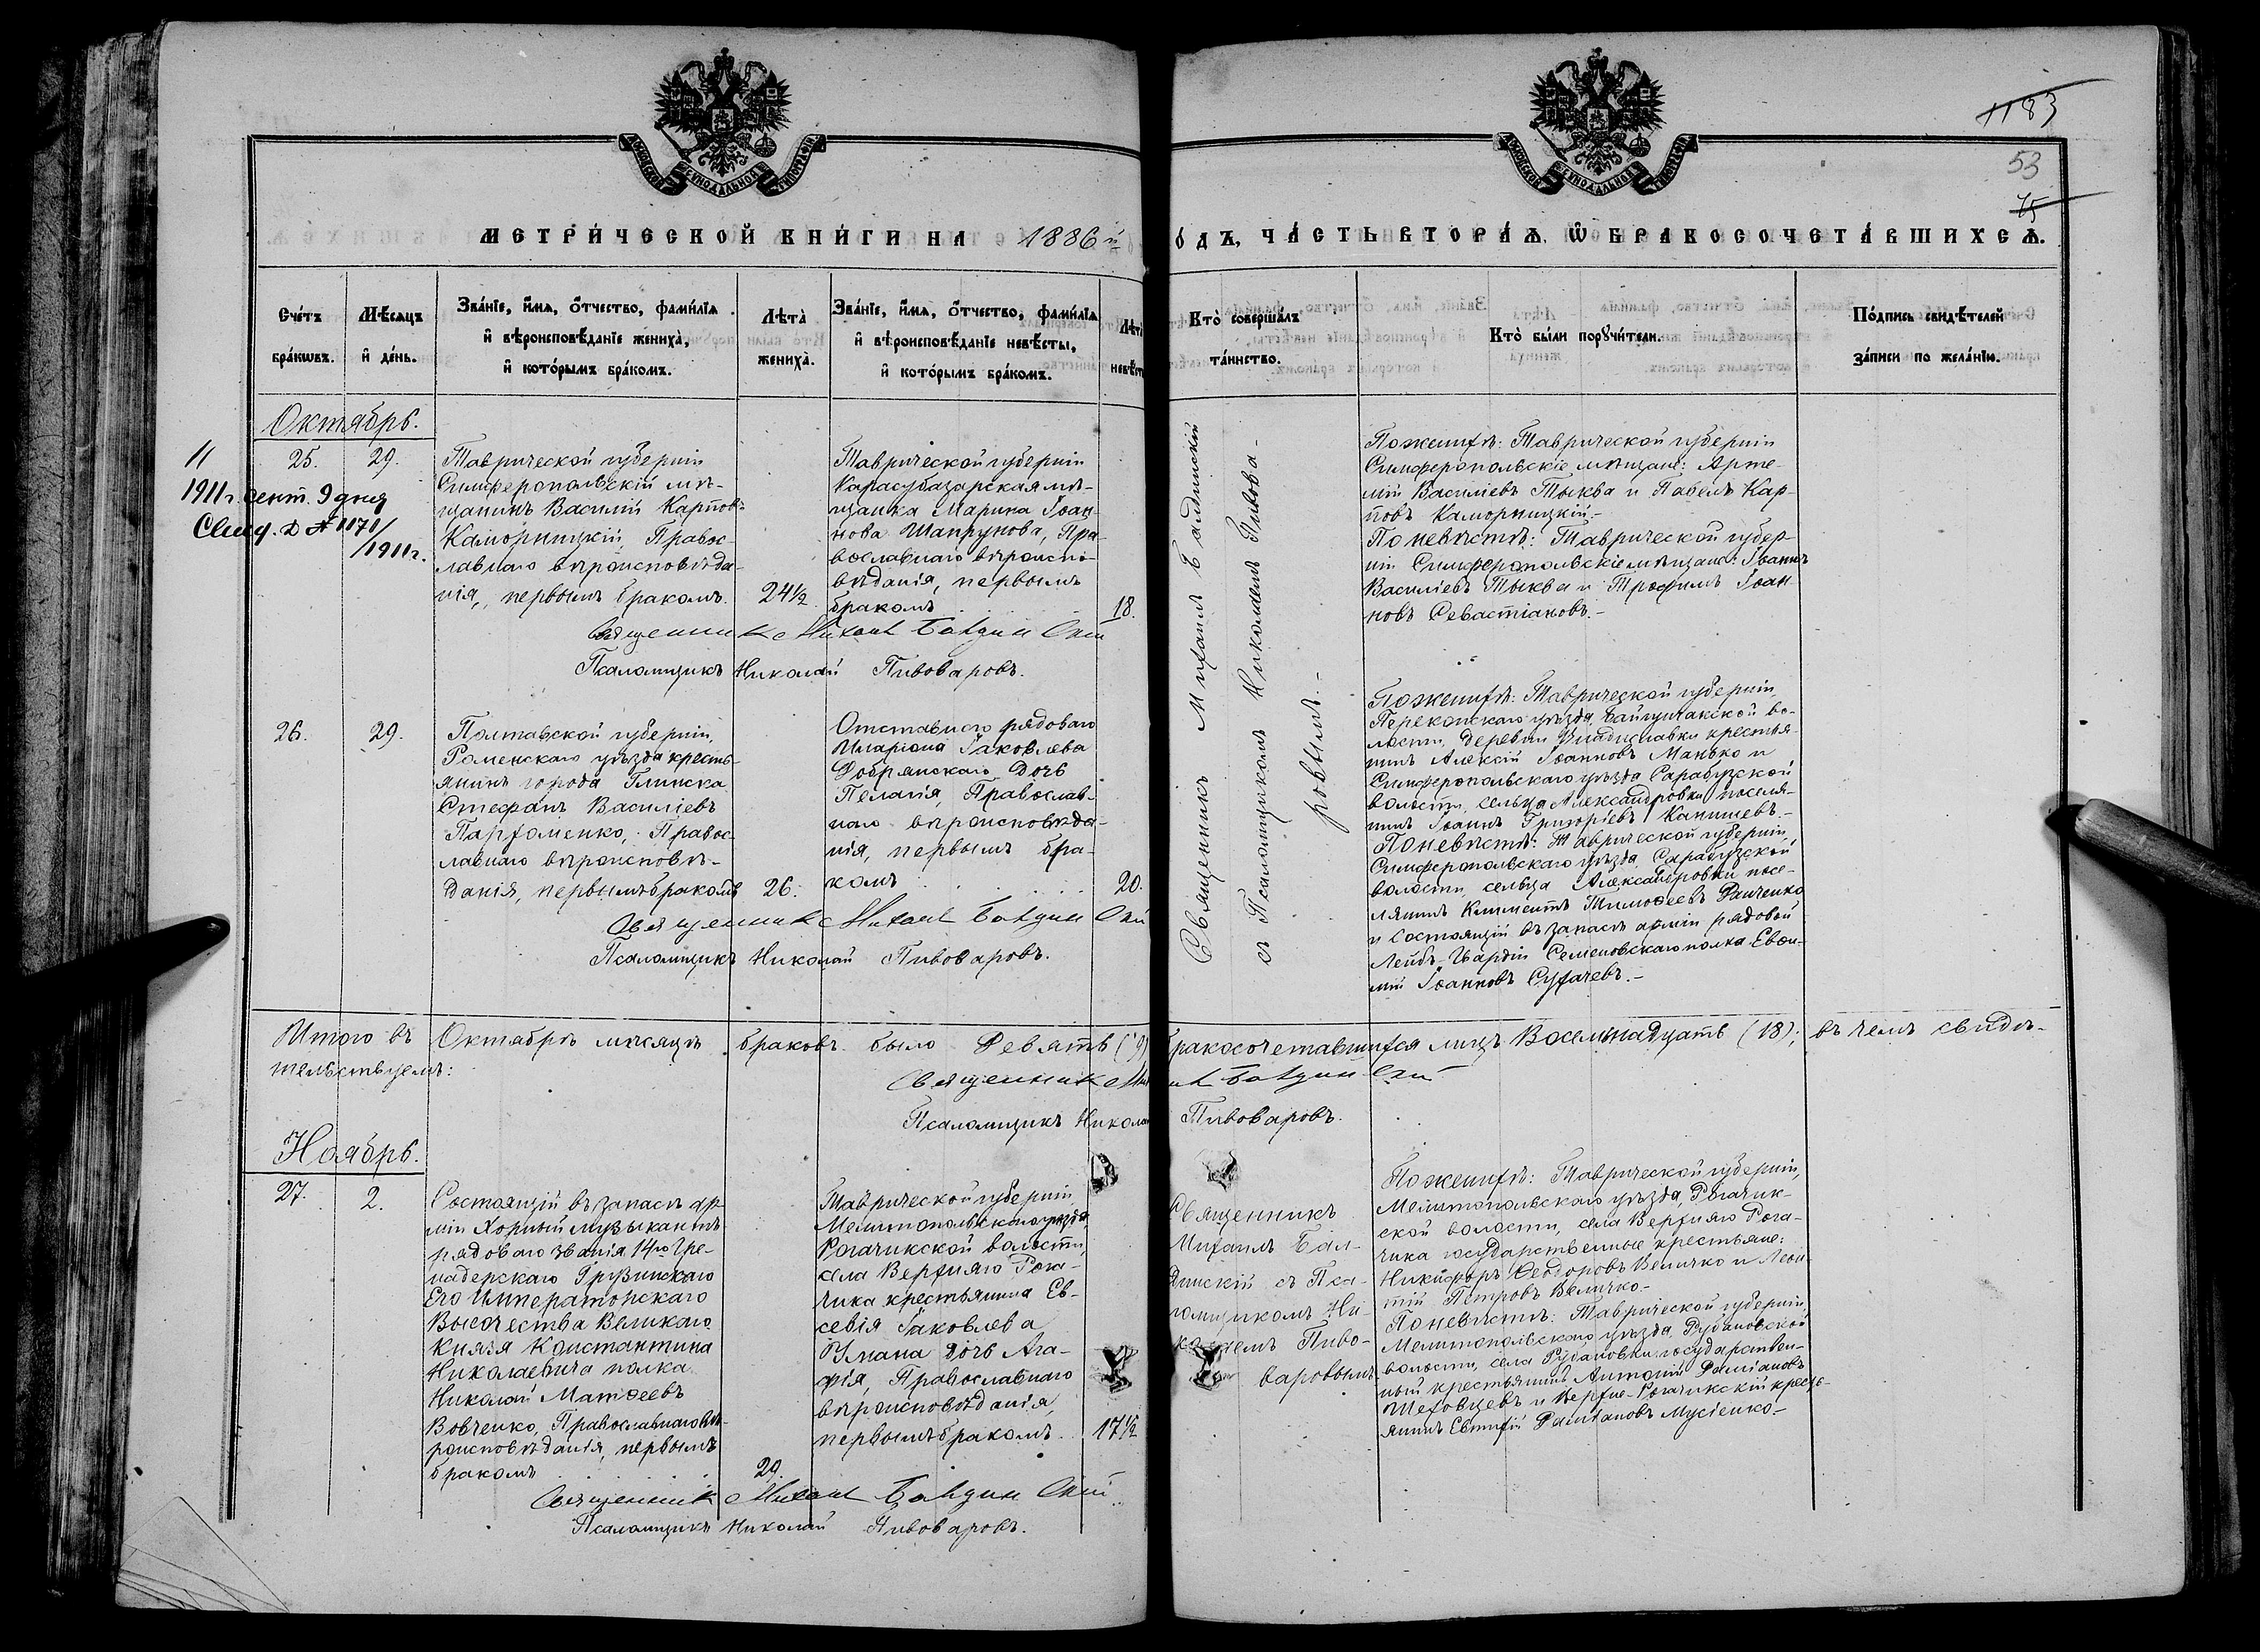 1183
53
75
МЕТРИЧЕСКОЙ КНИГИ НА 1886 й
ОДЪ, ЧАСТЬ ВТОРАѦ, Ѽ БРАКОСОЧЕТАВШИХСѦ.
Счетъ бракѡвъ.
Мѣсяцъ и день.
Званіе, имя, отчество, фамилія и вѣроисповѣданіе жениха, и которымъ бракомъ.
Лѣта жениха.
Званіе, имя, отчество, фамилія и вѣроисповѣданіе невѣсты, и которымъ бракомъ.
Лѣта невѣсты
Кто совершалъ таинство.
Кто были поручители.
Подпись свидѣтелей записи по желанію.
Октябрь.
11
1911 г. сент. 9 дня
Свид. Д № 1170/
/1911 г.
25.
29.
Таврической губерніи
Симферопольскій мѣ-
щанинъ Василій Карповъ
Каморницкій, Правос-
лавнаго вѣроисповѣда-
нія, первымъ бракомъ.
24½
Таврической губерніи
Карасубазарская мѣ-
щанка Марина Іоан-
нова Шапрунова, Пра-
вославнаго вѣроиспо-
вѣданія, первымъ
бракомъ
18.
Священникъ Михаилъ Балдинскій
Псаломщикъ Николай Пивоваровъ.
Священникъ Михаилъ Балдинскій
съ Псаломщикомъ Николаемъ Пивова-
ровымъ.-
По женихѣ: Таврической губерніи
Симферопольскіе мѣщане: Арте-
мій Василіевъ Тыква и Павелъ Кар-
повъ Каморницкій.-
По невѣстѣ: Таврической губер-
ніи Симферопольскіе мѣщане: Іоаннъ
Василіевъ Тыква и Трофимъ Іоан-
новъ Севастіановъ.-
26.
29.
Полтавской губерніи,
Роменскаго уѣзда кресть-
янинъ города Глинска
Стефанъ Василіевъ
Пархоменко, Правос-
лавнаго вѣроисповѣ-
данія, первымъ бракомъ
26.
Отставного рядоваго
Иларіона Іаковлева
Добрянскаго дочь
Пелагія, Православ-
наго вѣроисповѣда-
нія, первымъ бра-
комъ
20.
Священникъ Михаилъ Балдинскій
Псаломщикъ Николай Пивоваровъ.
По женихѣ: Таврической губерніи
Перекопскаго уѣзда, во-
лости, деревни крестья-
нинъ Алексій Іоанновъ Манько и
Симферопольскаго уѣзда Сарабузской
волости, сельца Александровки поселя-
нинъ Іоаннъ Григоріевъ Канищевъ.-
По невѣстѣ: Таврической губерніи,
Симферопольскаго уѣзда Сарабузской
волости, сельца Александровки посе-
лянинъ Климентъ Тимоѳеевъ
и состоящій въ запасѣ арміи рядовой
Лейбъ-Гвардіи Семеновскаго полка Евѳи-
мій Іоанновъ Сухачевъ.-
Итого въ Октябрѣ мѣсяцѣ браковъ было Девять (9)
бракосочетавшихся лицъ Восемнадцать (18), въ чемъ свидѣ-
тельствуемъ:
Священникъ Михаилъ Балдинскій
Псаломщикъ Николай Пивоваровъ.
Ноябрь.
27.
2.
Состоящій въ запасѣ ар-
міи Хорный музыкантъ
рядоваго званія 14го Гре-
надерскаго Грузинскаго
Его Императорскаго
Высочества Великаго
Князя Константина
Николаевича полка
Николай Матѳеевъ
Вовченко, Православнаго вѣ-
роисповѣданія, первымъ
бракомъ
29.
Таврической губерніи
Мелитопольскаго уѣзда,
Рогачикской волости,
села Верхняго Рога-
чика крестьянина Ев-
севія Іаковлева
Умана дочь Ага-
фія, Православнаго
вѣроисповѣданія,
первымъ бракомъ
17½
Священникъ
Михаилъ Бал-
динскій съ Пса-
ломщикомъ Ни-
колаемъ Пиво-
варовымъ.
По женихѣ: Таврической губерніи,
Мелитопольскаго уѣзда, Рогачик-
ской волости, села Верхняго Рога-
чика государственные крестьяне:
Никифоръ Ѳеодоровъ Величко и Леон-
тій Петровъ Величко.-
По невѣстѣ: Таврической губерніи,
Мелитопольскаго уѣзда, Рубановской
волости, села Рубановки государствен-
ный крестьянинъ Антоній Даміановъ
Шеховцевъ и Верхне-Рогачикскій кресть-
янинъ Евтихій Даміановъ Мусіенко.-
Священникъ Михаилъ Балдинскій
Псаломщикъ Николай Пивоваровъ.